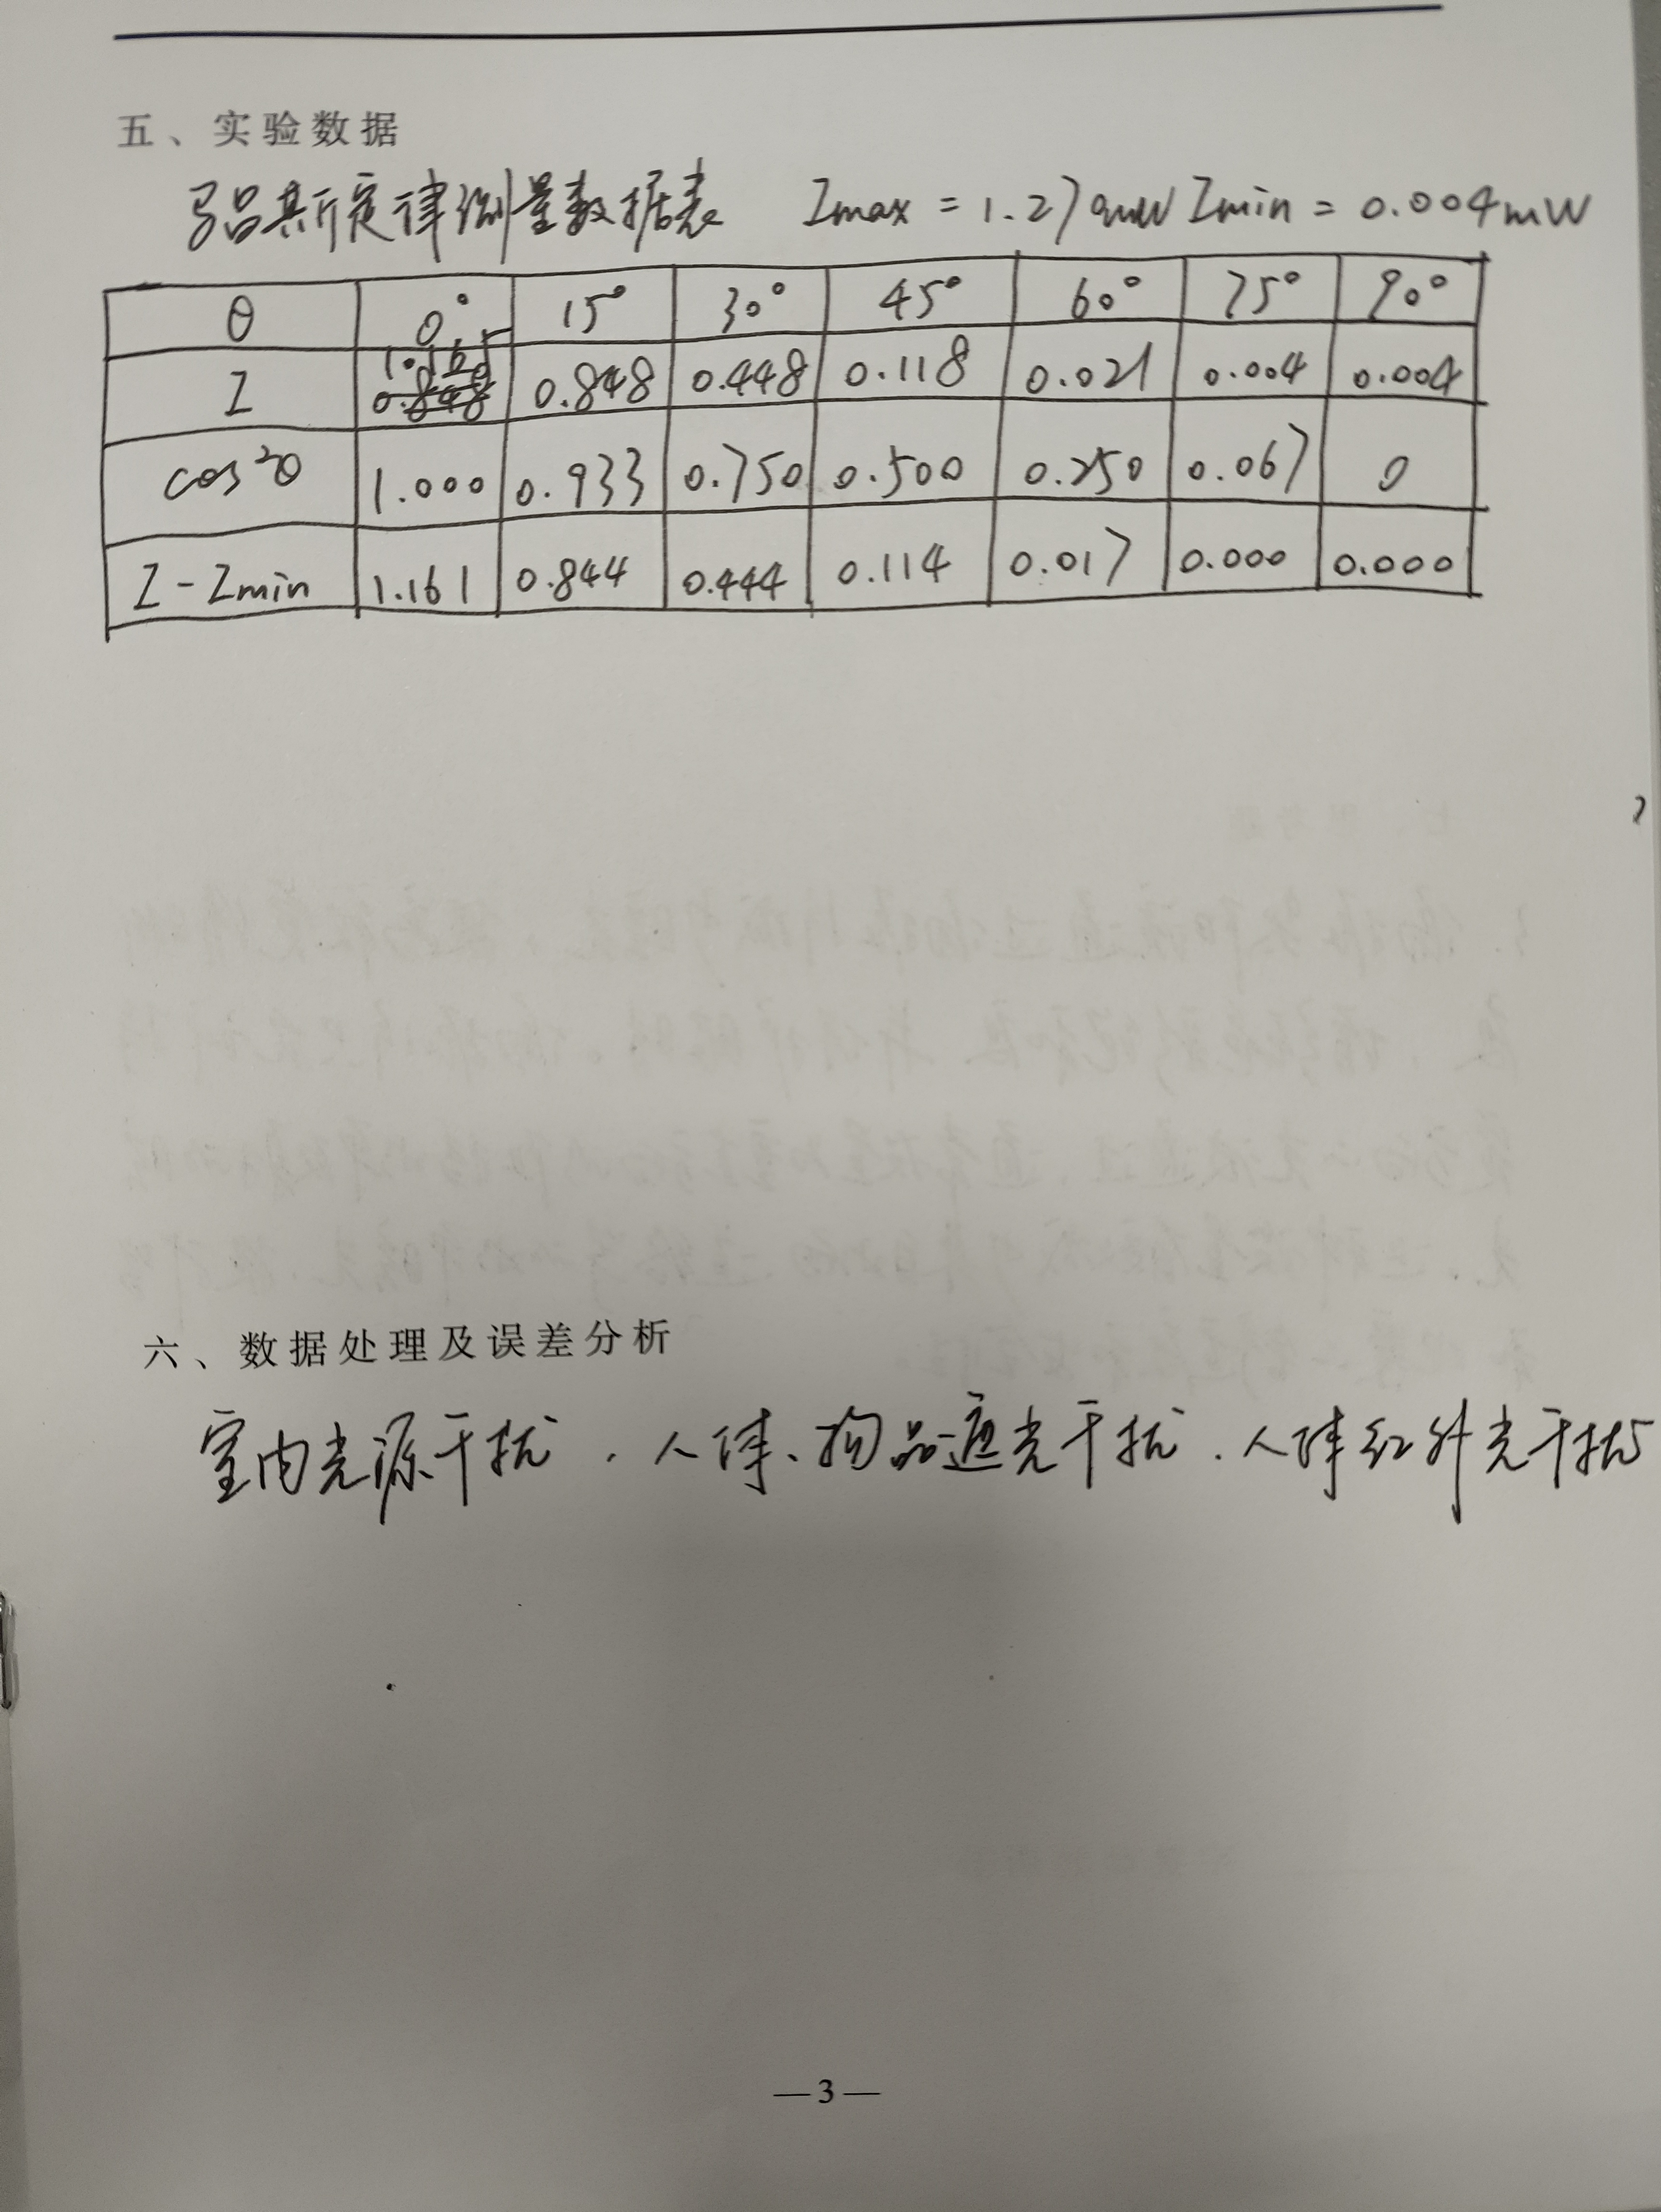 五、实验数据
马吕斯定律测量数据表 Imax = 1.279mW Imin = 0.004mW
θ 0° 15° 30° 45° 60° 75° 90°
I 1.165 0.848 0.448 0.118 0.021 0.004 0.004
cos²θ 1.000 0.933 0.750 0.500 0.250 0.067 0
I-Imin 1.161 0.844 0.444 0.114 0.017 0.000 0.000
六、数据处理及误差分析
室内光源干扰.人体、物品遮光干扰.人体红外光干扰
—3—